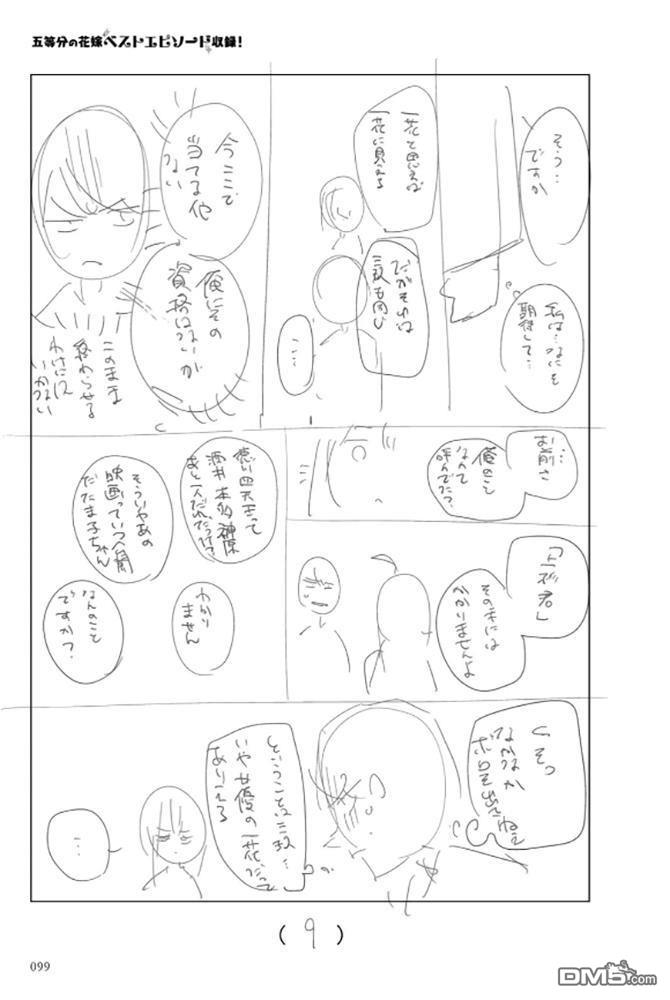 五等分の花嫁ベストエピソード収録!
そう…
ですか
私は…なにを
期待して…
一花と思えば
一花に見える
だがそれは
三玖も同じ
…
今ここで
当てるしか
ない
俺にその
資格はないが
このまま
終わらせる
わけには
いかない
お前さ…
俺のこと
なんて
呼んでたっけ?
「上杉君」
その手には
かかりませんよ
徳川四天王って
酒井 本多 榊原
あと一人だれだっけ?
わかり
ません
そういやあの
映画っていつ公開
だたま子ちゃん
なんのこと
ですか?
くそっ
なかなか
ボロを出さねぇ
ということは三玖…
いや女優の一花だって
ありえる
…
(9)
099
DM5.com